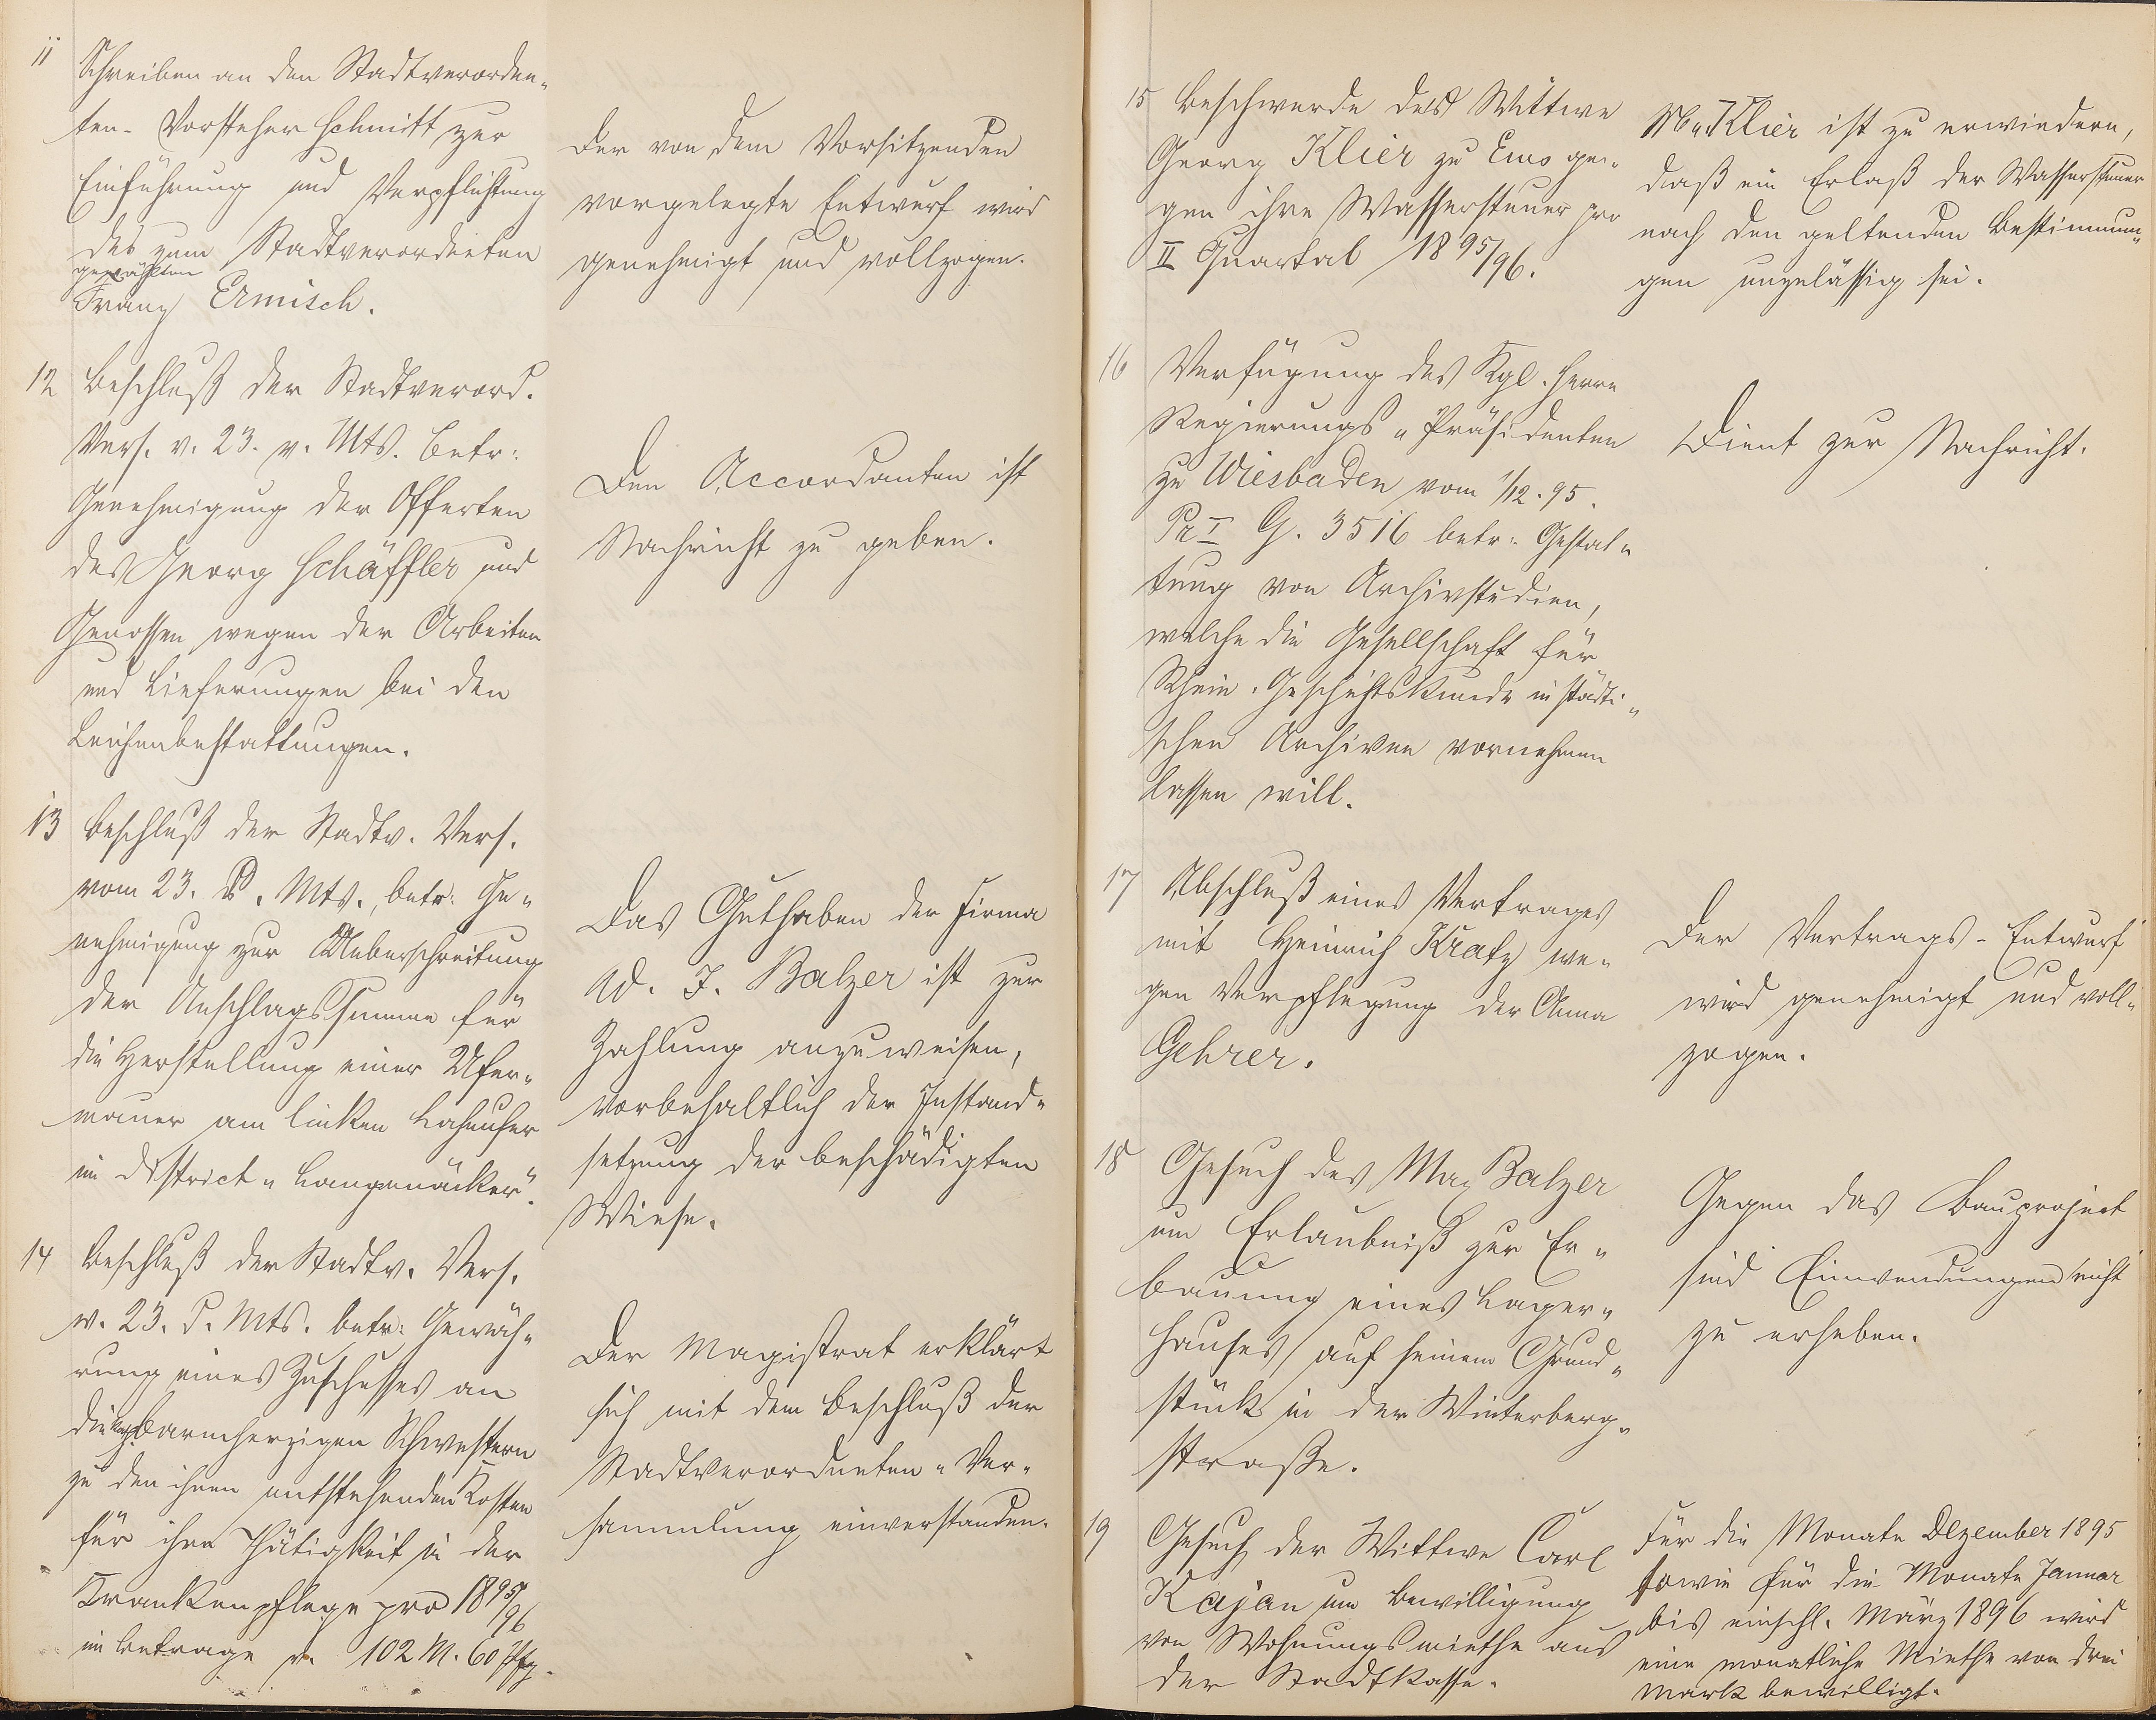 11 Schreiben an den Stadtverorden-
ten-Vorsteher Schmitt zur
Einführung und Verpflichtung
des zum Stadtverordneten
gewählten
Franz Ermisch.
Der von dem Vorsitzenden
vorgelegte Entwurf wird
genehmigt und vollzogen.
12 Beschluß der Stadtverord.
Vers. v. 23. v. Mts. betr:
Genehmigung der Offerten
des Georg Schäffler und
Genossen wegen der Arbeiten
und Lieferungen bei den
Leichenbestattungen.
Den Accordanten ist
Nachricht zu geben.
13 Beschluß der Stadtv. Vers.
vom 23. d. Mts., betr: Ge-
nehmigung zur Ueberschreitung
der Anschlagssumme für
die Herstellung einer Ufer-
mauer am linken Lahnufer
im District "Langenäcker".
Das Guthaben der Firma
Ad. J. Balzer ist zur
Zahlung anzuweisen,
vorbehaltlich der Instand-
setzung der beschädigten
Wiese.
14 Beschluß der Stadtv. Vers.
v. 23. d. Mts. betr: Gewäh-
rung eines Zuschusses an
die barmherzigen Schwestern
zu den ihnen entstehenden Kosten
für ihre Thätigkeit in der
Krankenpflege pro 1895/96
im Betrage v. 102 M. 60 Pfg.
Der Magistrat erklärt
sich mit dem Beschluß der
Stadtverordneten-Ver-
sammlung einverstanden.
15 Beschwerde des Wittwe
Georg Klier zu Ems ge-
gen ihre Wassersteuer pro
II Quartal 1895/96.
Klier ist zu erwiedern,
daß ein Erlaß der Wassersteuer
nach den geltenden Bestimmun-
gen unzulässig sei.
16 Verfügung des Kgl. Herrn
Regierungs-Präsidenten
zu Wiesbaden vom 1/12.95.
Pr I G. 3516 betr: Gestat-
tung von Archivstudien,
welche die Gesellschaft für
Rhein. Geschichtskunde in städti-
schen Archiven vornehmen
lassen will.
Dient zur Nachricht.
17 Abschluß eines Vertrages
mit Heinrich Kratz we-
gen Verpflegung der Anna
Gehrer.
Der Vertrags-Entwurf
wird genehmigt und voll-
zogen.
18 Gesuch des Max Balzer
um Erlaubniß zur Er-
bauung eines Lager-
hauses auf seinem Grund-
stück in der Winterberg-
straße.
Gegen das Bauproject
sind Einwendungen nicht
zu erheben.
19 Gesuch der Wittwe Carl
Kajan um Bewilligung
von Wohnungsmiethe aus
der Stadtkasse.
Für die Monate Dezember 1895
sowie für die Monate Januar
bis einschl. März 1896 wird
eine monatliche Miethe von drei
Mark bewilligt.